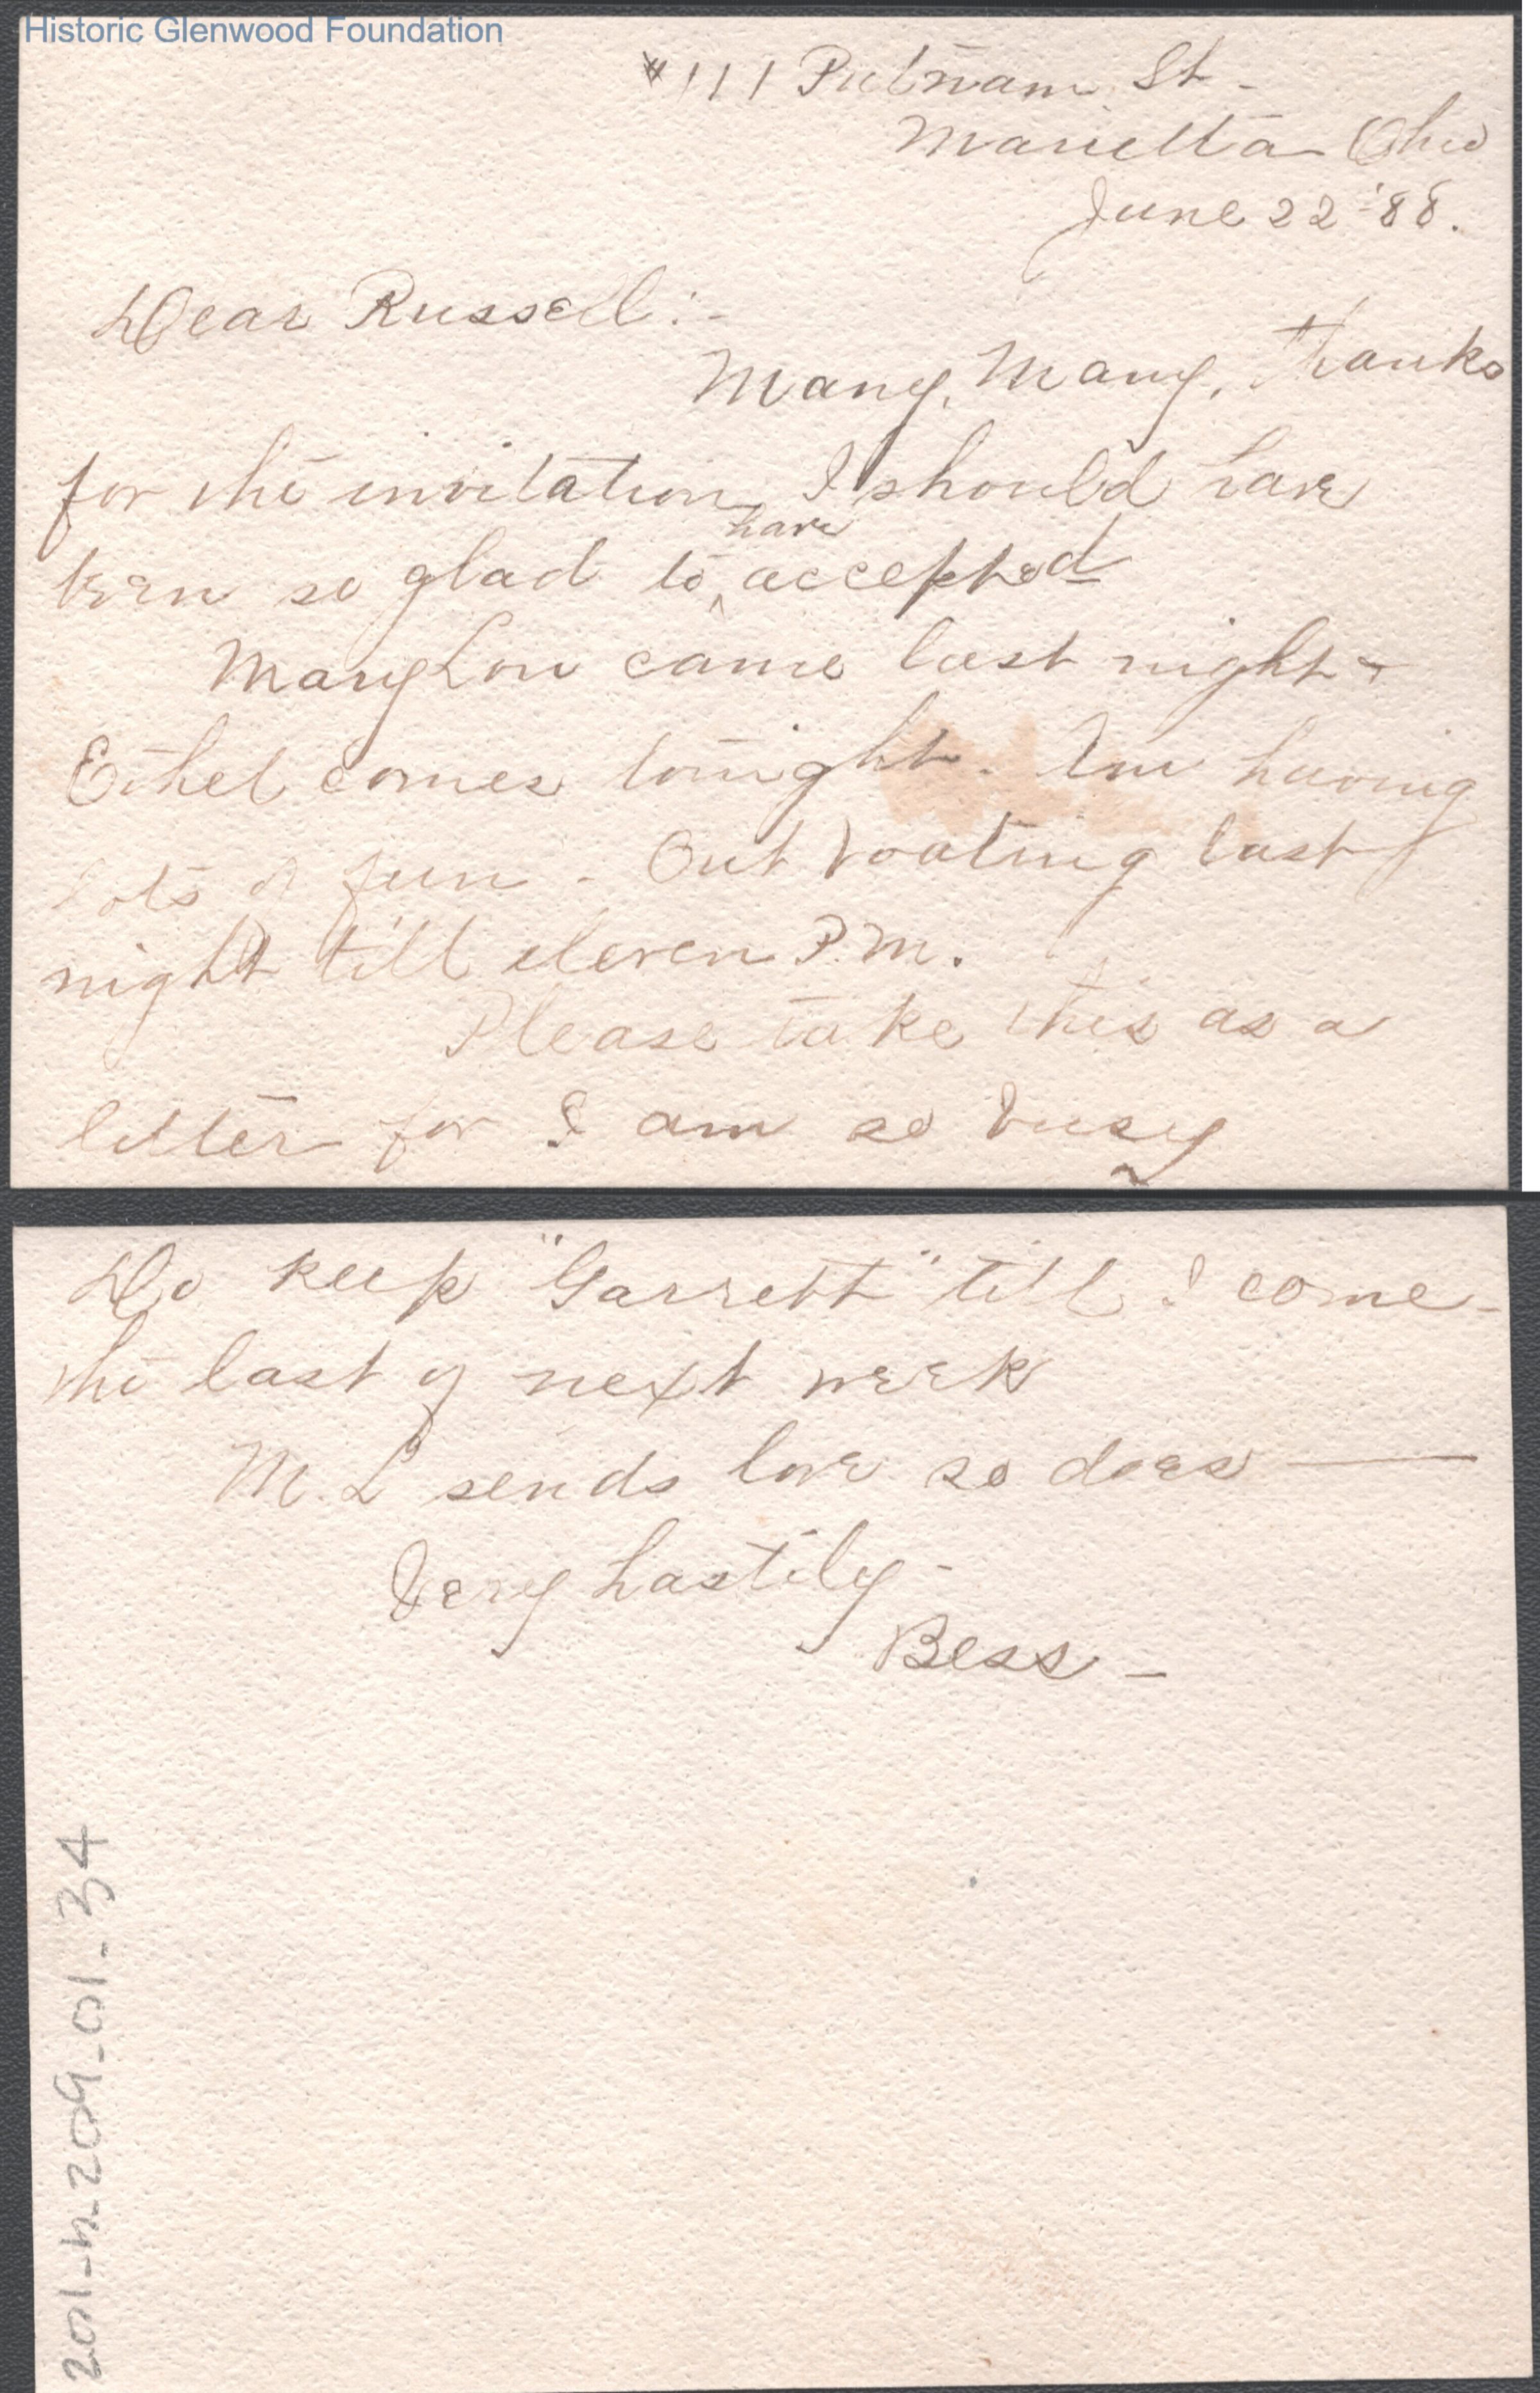 Historic Glenwood Foundation
#111 Putnam St -
Marietta Ohio
June 22 - '88.
Dear Russell:-
Many, Many, thanks
for the invitation I should have
been so glad to have accepted
Mary Lou came last night -
Ethel comes tonight. Am having
lots of fun - Out boating last
night till eleven P.M.
Please take this as a
letter for I am so busy
Do keep "Garrett" till I come -
the last of next week
M. L sends love so does —
Very hastily -
Bess -
201-h-209-01-34